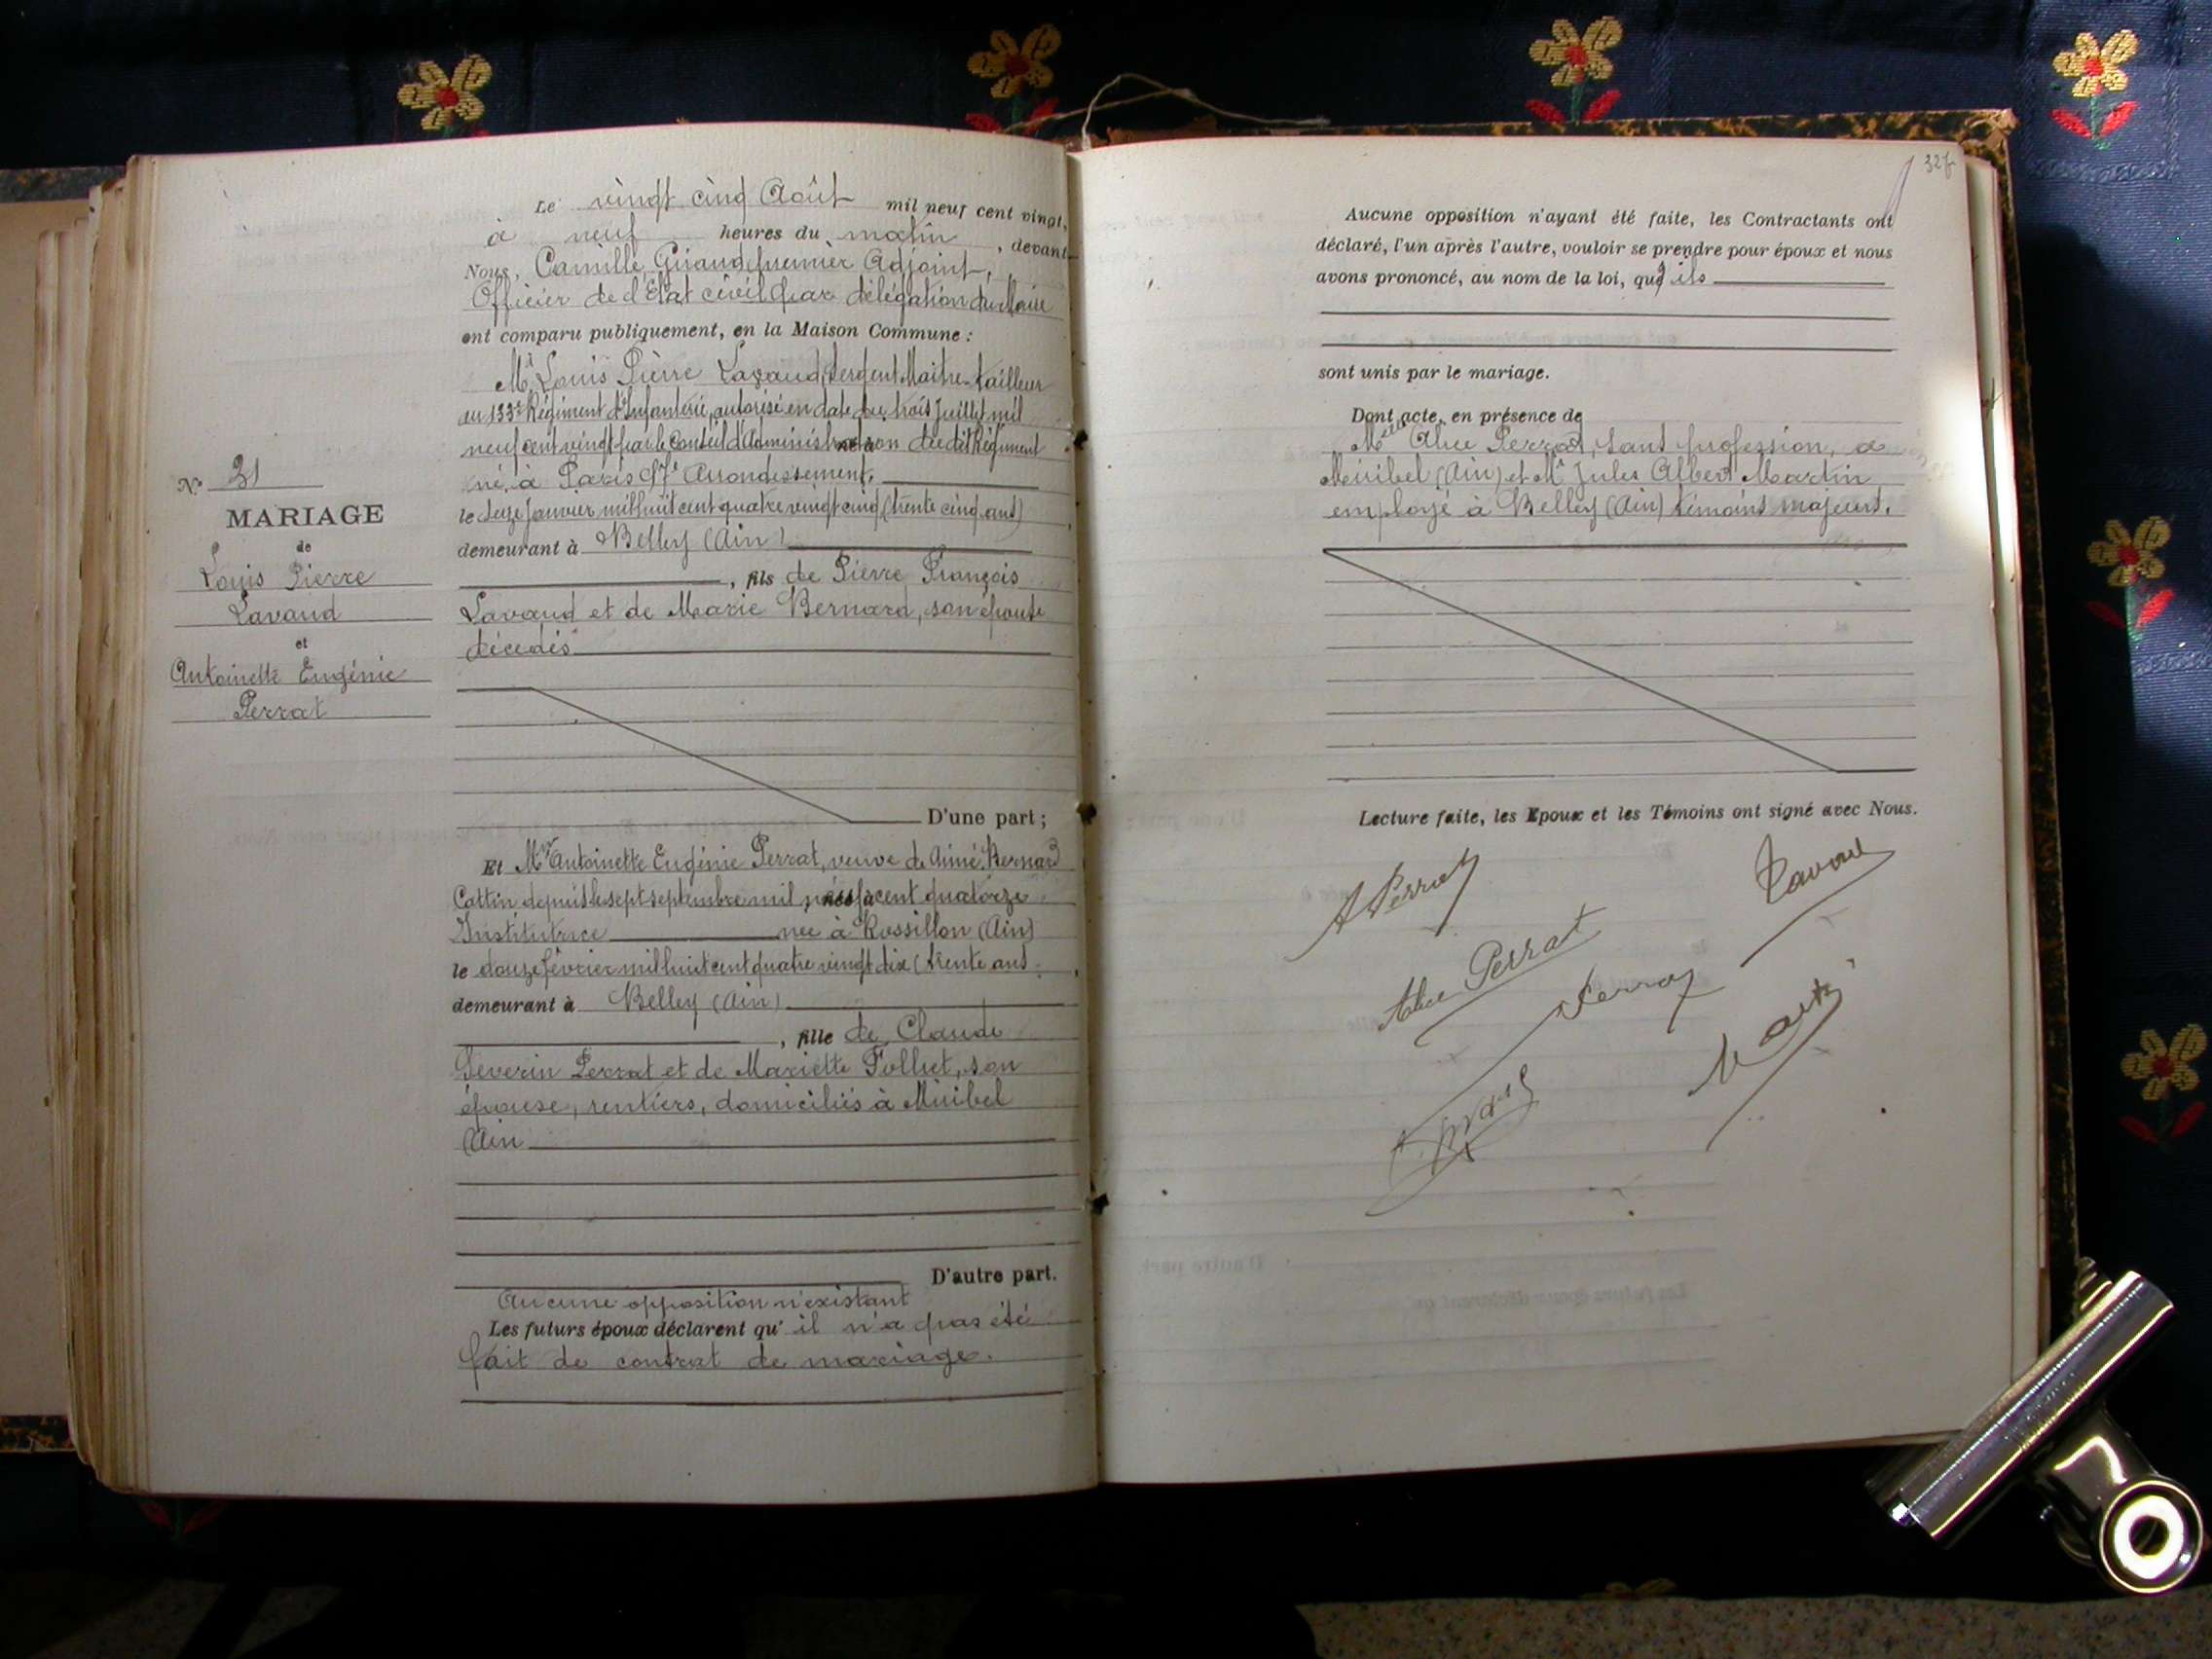 N° 31
MARIAGE
de
Louis Pierre
Lavaud
et
Antoinette Eugénie
Perrat
Le vingt cinq Août mil neuf cent vingt,
à neuf heures du matin, devant
Nous, Camille Giraud, premier Adjoint,
Officier de l'Etat civil par délégation du Maire
ont comparu publiquement, en la Maison Commune :
Mr Louis Pierre Lavaud, Sergent Maitre-tailleur
au 133e Régiment d'Infanterie, autorisé en date du trois Juillet mil
neuf cent vingt par le Conseil d'Administration du dit Régiment
né à Paris Arrondissement,
le seize Janvier mil huit cent quatre vingt cinq (trente cinq ans)
demeurant à Belley (Ain)
, fils de Pierre François
Lavaud et de Marie Bernard, son épouse
décédés
D'une part ;
Et Mme Antoinette Eugénie Perrat, veuve de Aimé Bernard
Cattin depuis le sept septembre mil neuf cent quatorze
Institutrice née à Rossillon (Ain)
le douze février mil huit cent quatre vingt dix (trente ans
demeurant à Belley (Ain)
, fille de Claude
Séverin Perrat et de Mariette Folliet, son
épouse, rentiers, domiciliés à Miribel
(Ain
D'autre part.
Aucune opposition n'existant
Les futurs époux déclarent qu'il n'a pas été
fait de contrat de mariage.
32
Aucune opposition n'ayant été faite, les Contractants ont
déclaré, l'un après l'autre, vouloir se prendre pour époux et nous
avons prononcé, au nom de la loi, qu'ils
sont unis par le mariage.
Dont acte, en présence de
Melle Alice Perrat, sans profession, à
Miribel (Ain) et Mr Jules Albert Martin
employé à Belley (Ain) témoins majeurs.
Lecture faite, les Epoux et les Témoins ont signé avec Nous.
A Perrat
Lavaud
Alice Perrat
Perrat
Martin